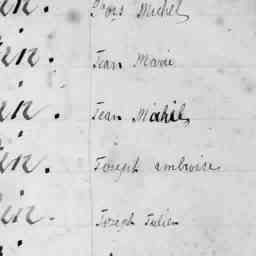 in. Michel
in. Jean Marie
in. Jean
in. Joseph ambroise
in. Joseph Julien